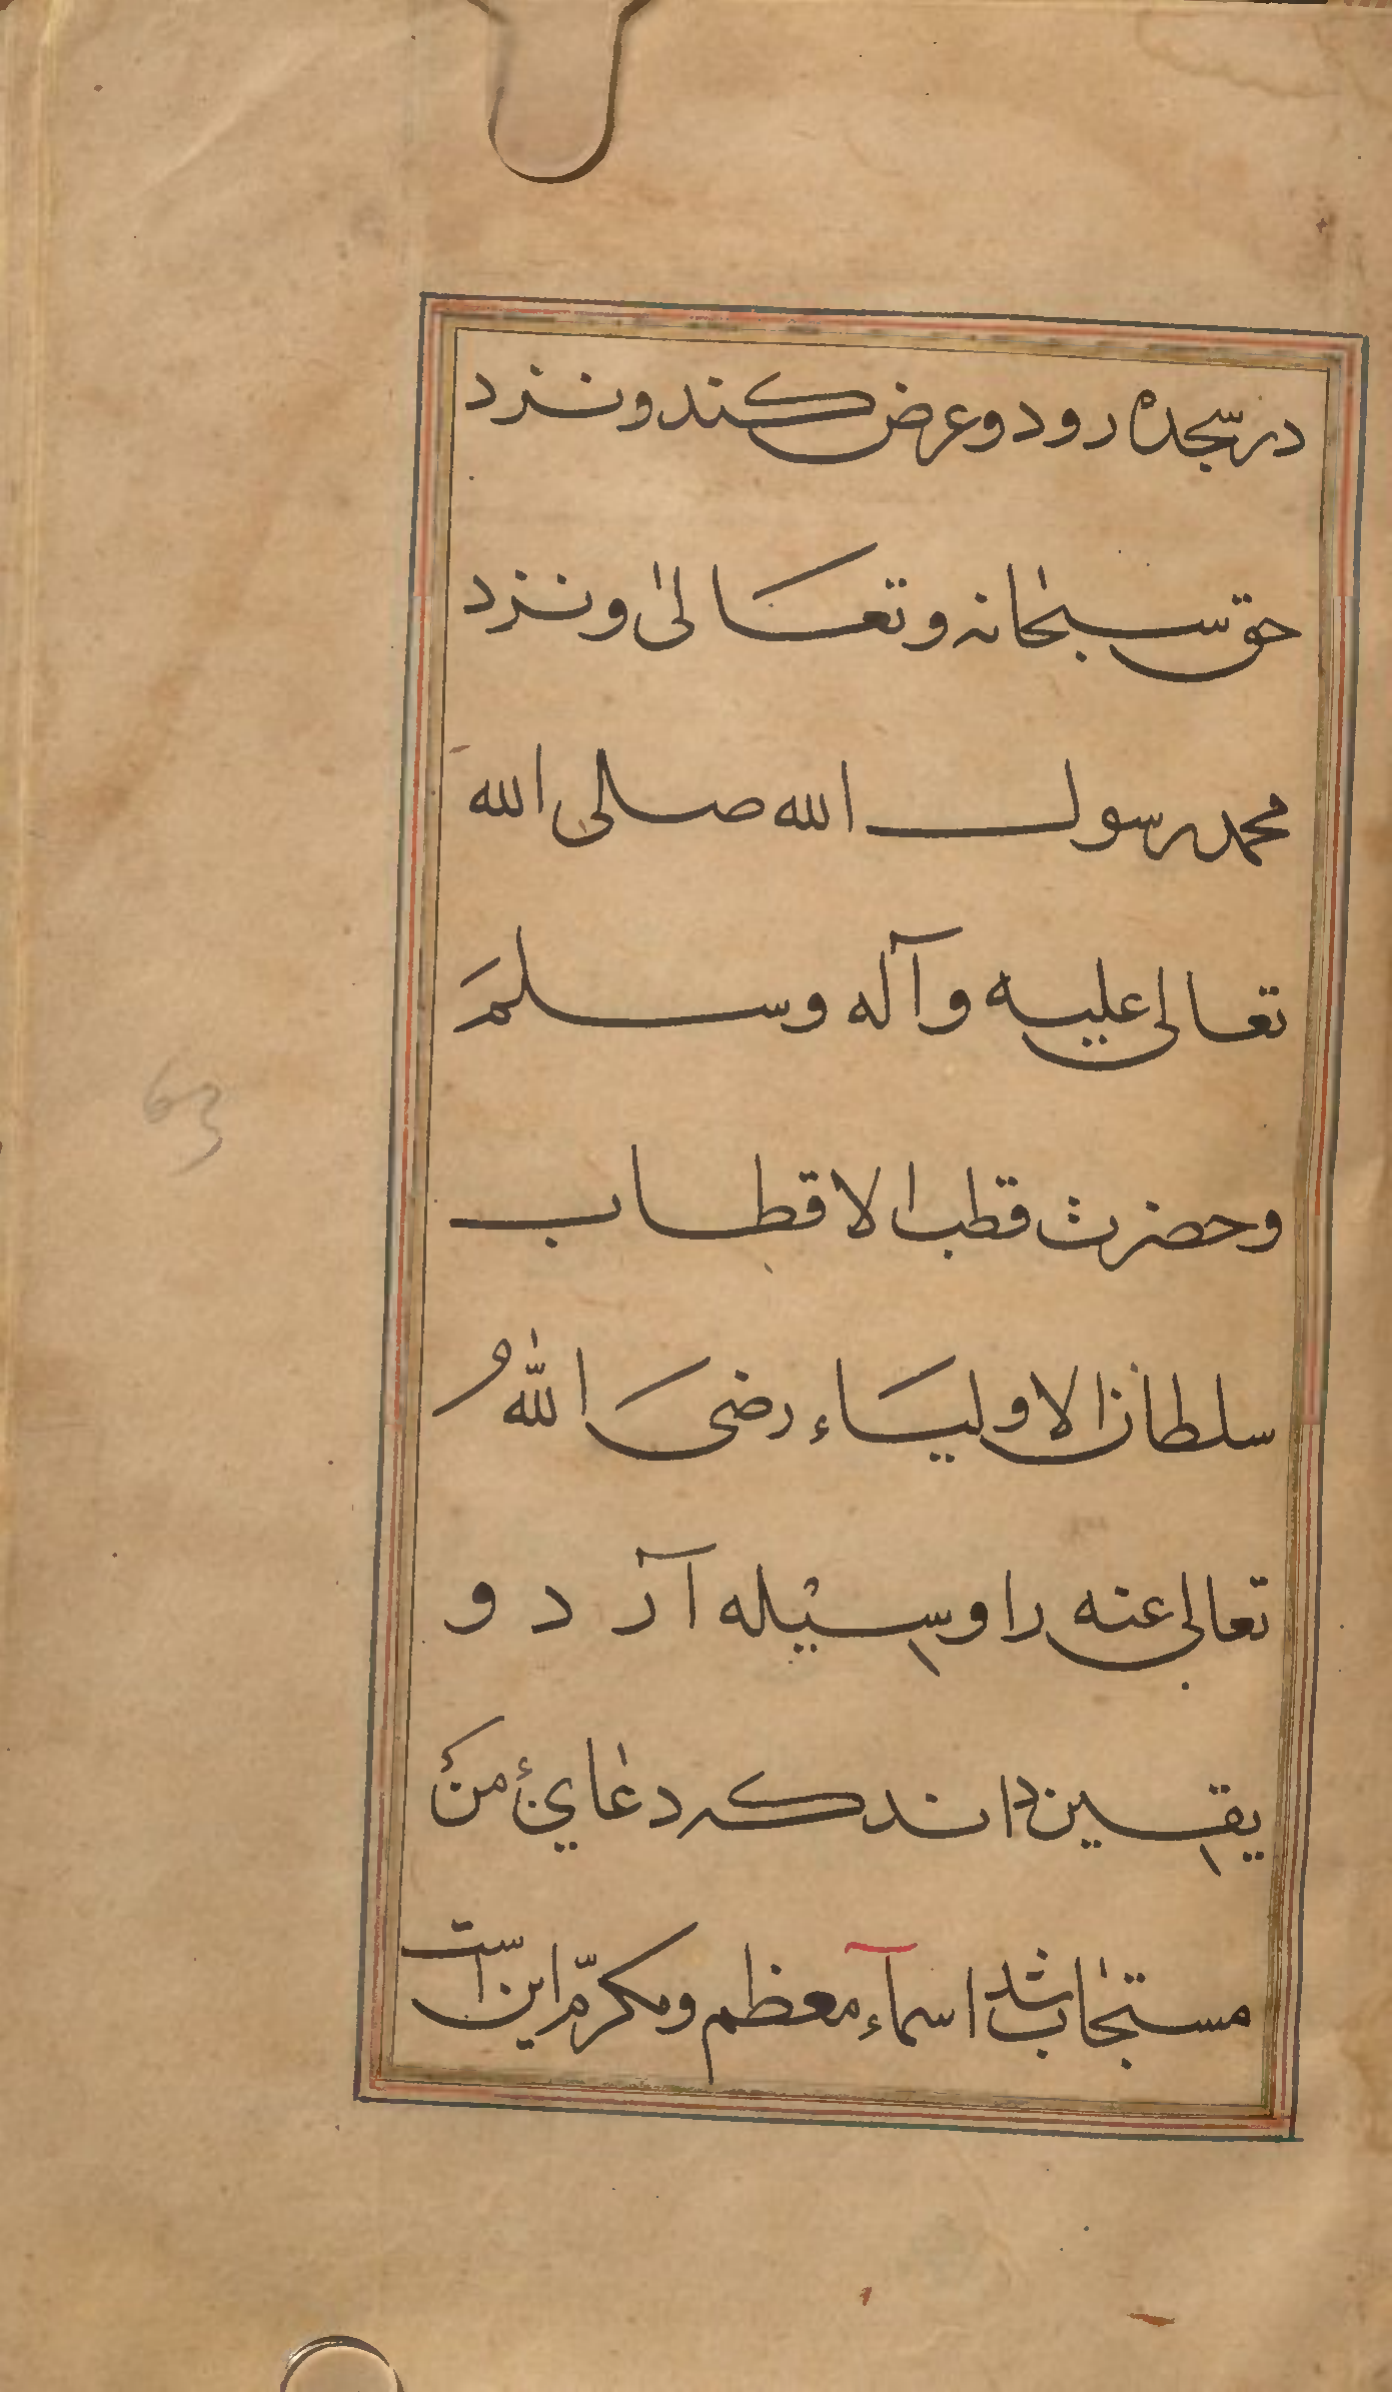 در سجده رود و عرض کند و نزد
حق سبحانه و تعالی و نزد
محمد رسول الله صلی الله
تعالی علیه و آله وسلم
و حضرت قطب الاقطاب
سلطان الاولیاء رضی الله
تعالی عنه را وسیله آرد و
یقین داند که دعای من
مستجاب شد اسمآء معظم و مکرّم این است
63